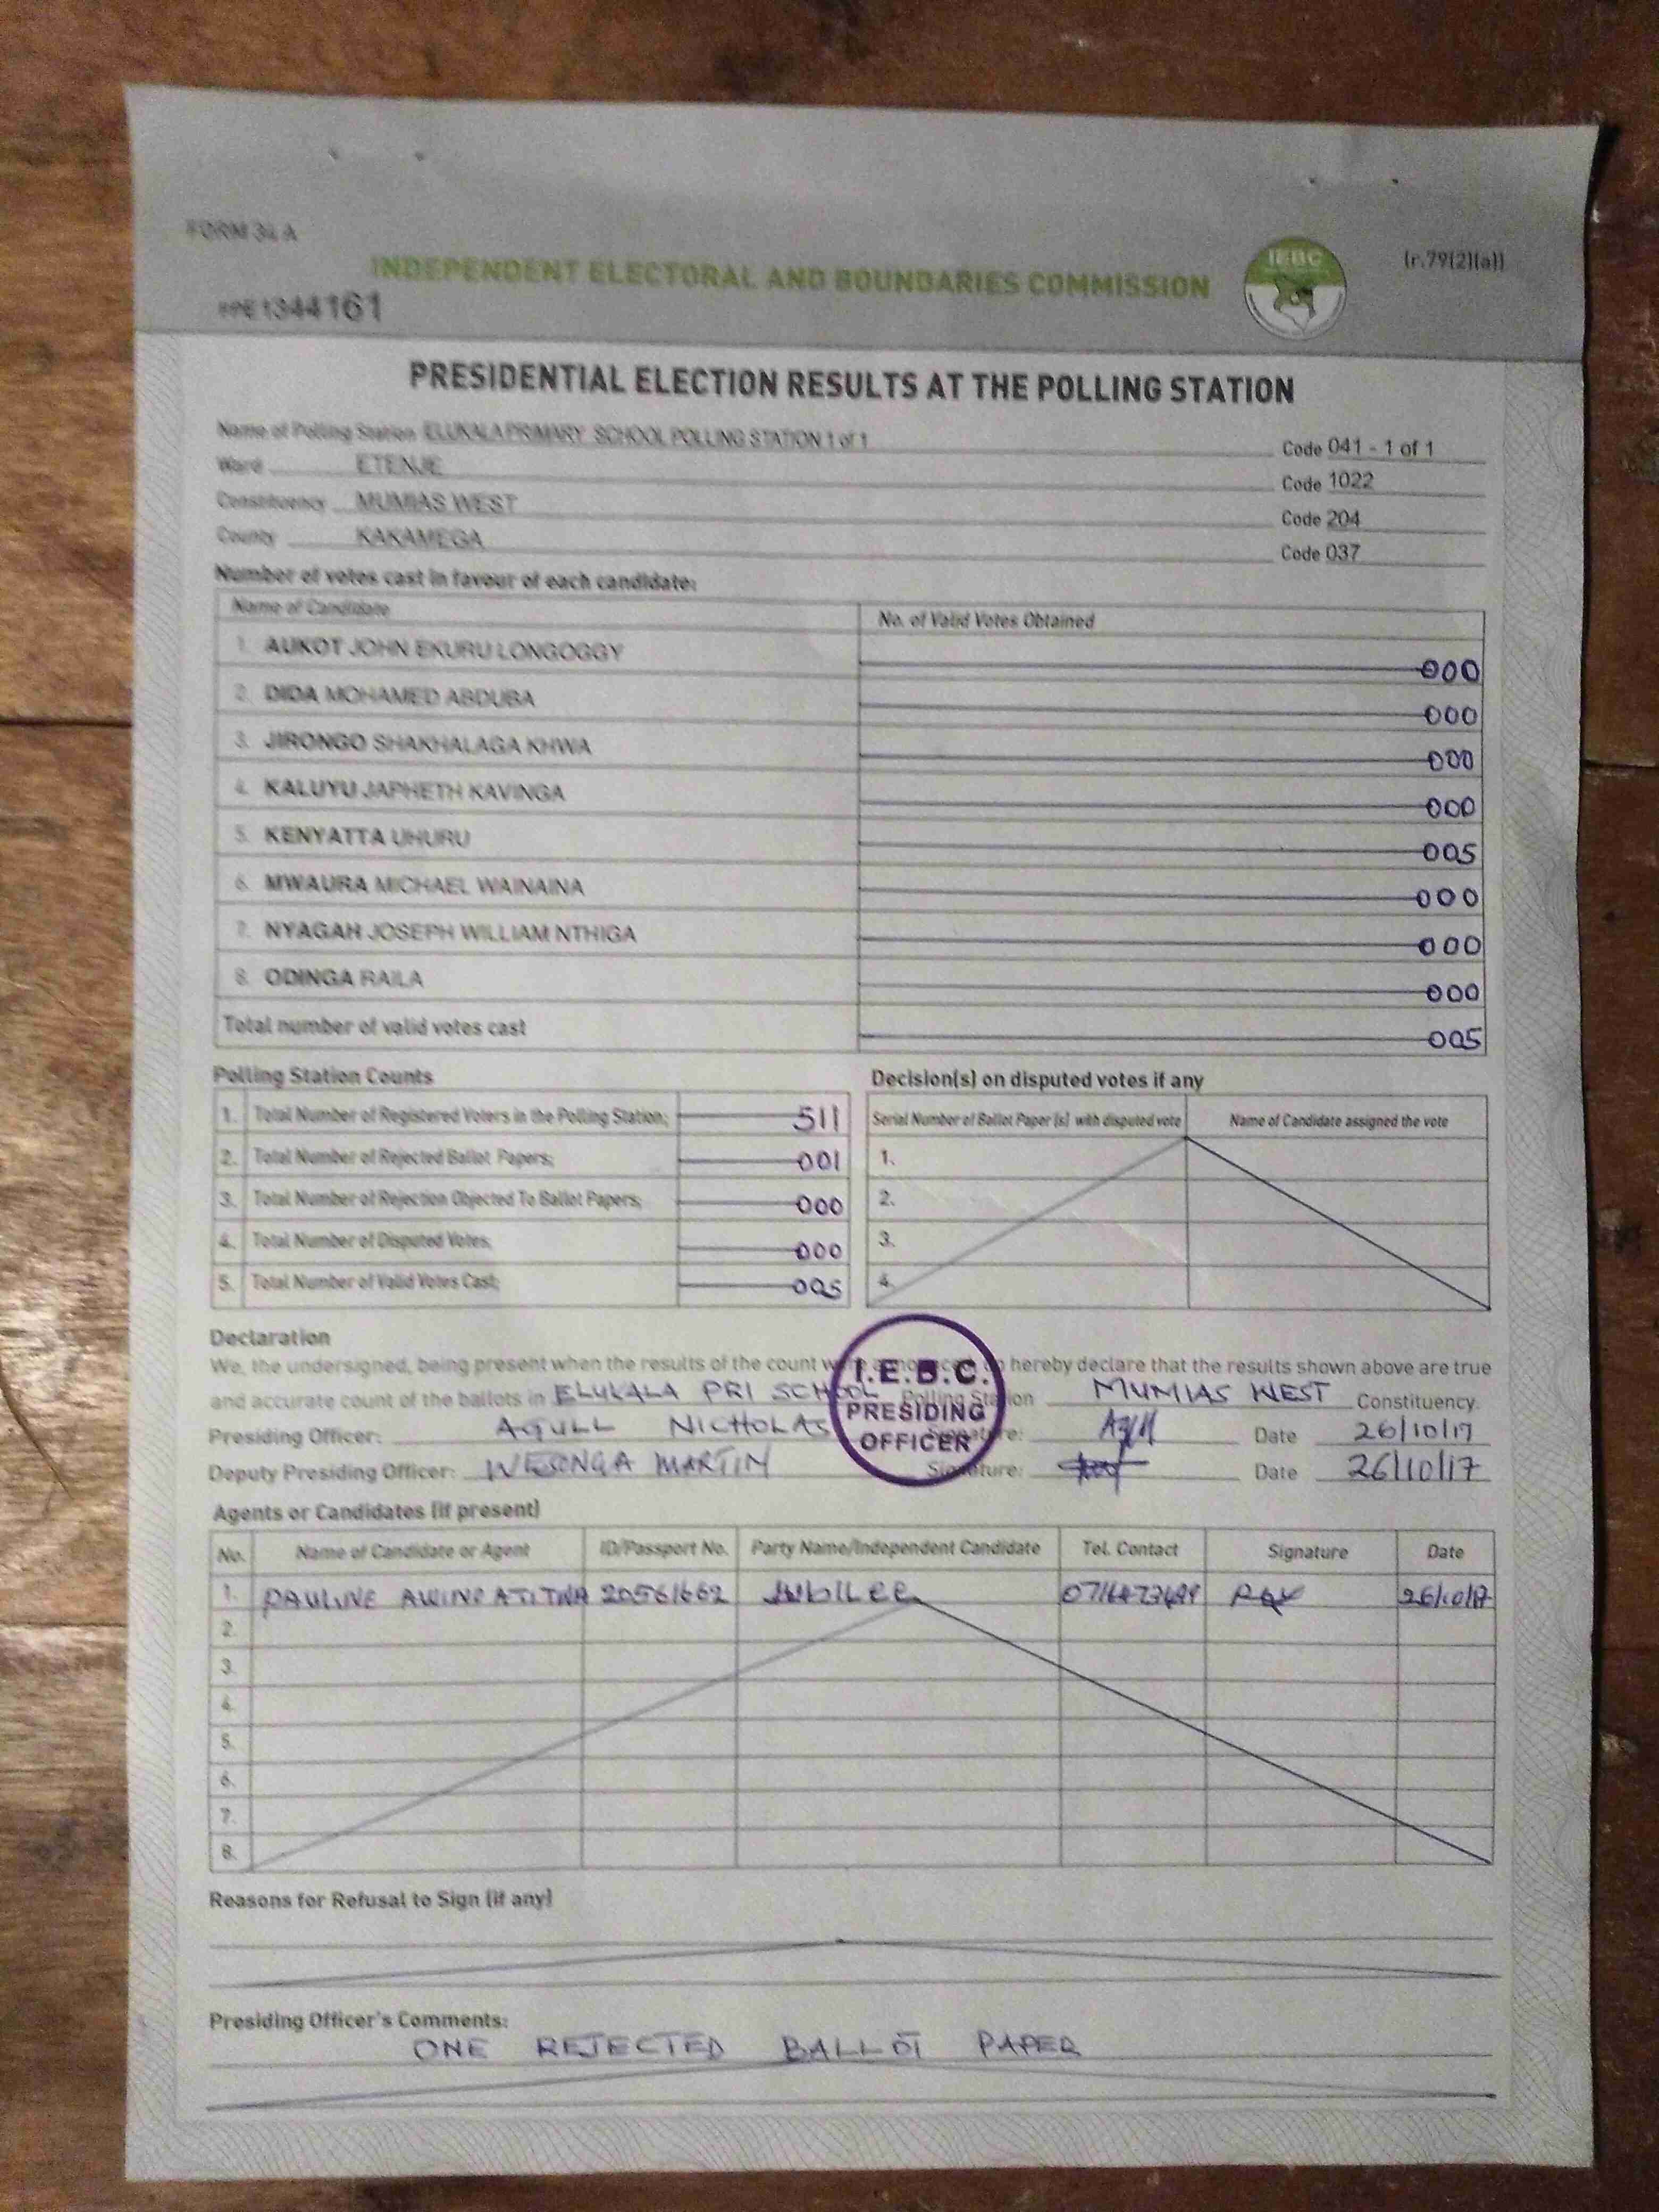 FORM 34 A
INDEPENDENT ELECTORAL AND BOUNDARIES COMMISSION
IEBC
(r.79(2)(a))
1344161
PRESIDENTIAL ELECTION RESULTS AT THE POLLING STATION
Name of Polling Station ELUKALA PRIMARY SCHOOL POLLING STATION 1 of 1 Code 041 - 1 of 1
Ward ETENJE Code 1022
Constituency MUMIAS WEST Code 204
County KAKAMEGA Code 037
Number of votes cast in favour of each candidate:
Name of Candidate No. of Valid Votes Obtained
1. AUKOT JOHN EKURU LONGOGGY 000
2. DIDA MOHAMED ABDUBA 000
3. JIRONGO SHAKHALAGA KHWA 000
4. KALUYU JAPHETH KAVINGA 000
5. KENYATTA UHURU 005
6. MWAURA MICHAEL WAINAINA 000
7. NYAGAH JOSEPH WILLIAM NTHIGA 000
8. ODINGA RAILA 000
Total number of valid votes cast 005
Polling Station Counts
1. Total Number of Registered Voters in the Polling Station; 511
2. Total Number of Rejected Ballot Papers; 001
3. Total Number of Rejection Objected To Ballot Papers; 000
4. Total Number of Disputed Votes; 000
5. Total Number of Valid Votes Cast; 005
Decision(s) on disputed votes if any
Serial Number of Ballot Paper (s) with disputed vote Name of Candidate assigned the vote
1.
2.
3.
4.
Declaration
We, the undersigned, being present when the results of the count were announced, do hereby declare that the results shown above are true
and accurate count of the ballots in ELUKALA PRI SCHOOL Polling Station MUMIAS WEST Constituency.
Presiding Officer: AGULL NICHOLAS Signature: Date 26/10/17
Deputy Presiding Officer: WESONGA MARTIN Signature: Date 26/10/17
I.E.B.C.
PRESIDING
OFFICER
Agents or Candidates (if present)
No. Name of Candidate or Agent ID/Passport No. Party Name/Independent Candidate Tel. Contact Signature Date
1. PAULINE 20561662 JUBILEE 26/10/17
2.
3.
4.
5.
6.
7.
8.
Reasons for Refusal to Sign (if any)
Presiding Officer's Comments:
ONE REJECTED BALLOT PAPER